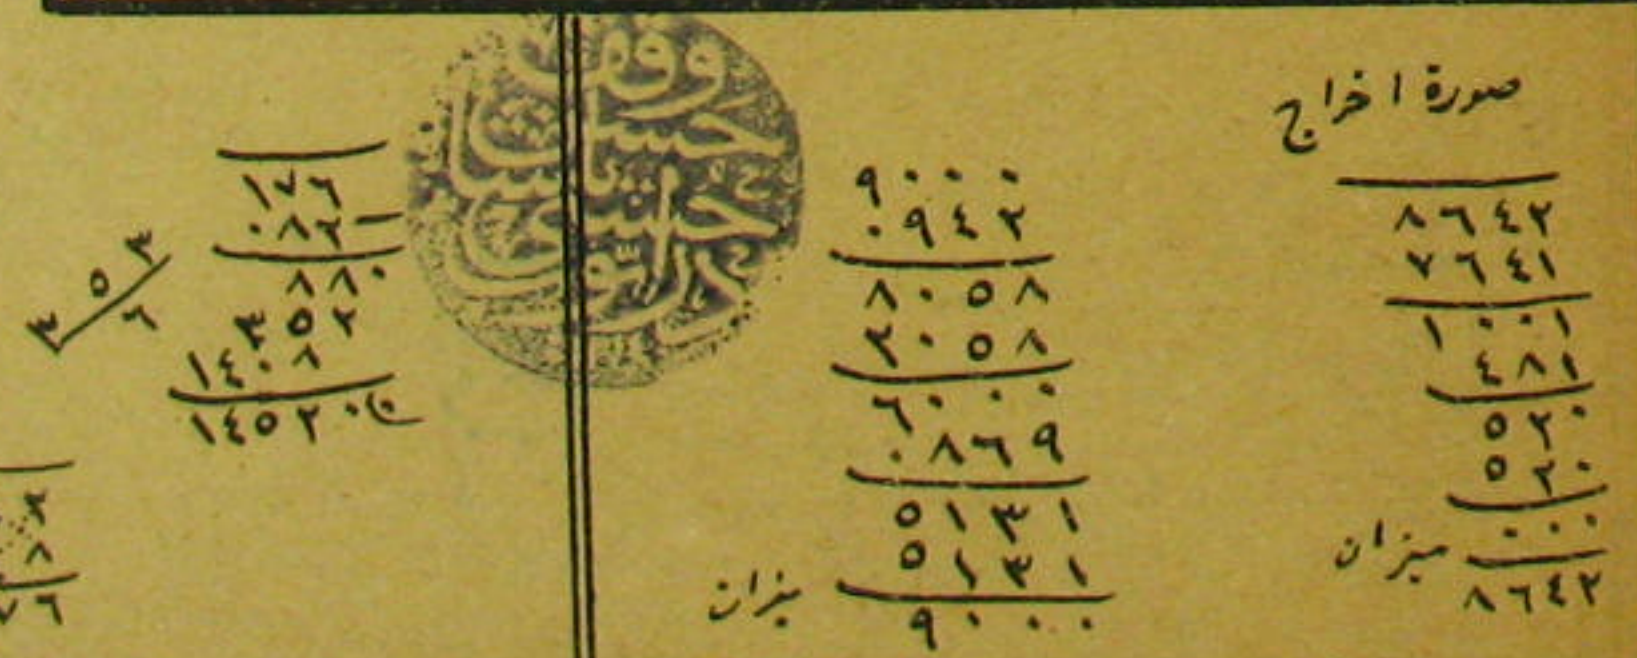 صورة اخراج
٨٦٤٢
٧٦٤١
١٠٠١
٤٨١
٥٢٠
٥٢٠
٠٠٠
ميزان
٨٦٤٢
٩٠٠٠
٠٩٤٢
٨٠٥٨
٢٠٥٨
٦٠٠٠
٠٨٦٩
٥١٣١
٥١٣١
ميزان
٩٠٠٠
وقف
حسن
پاشا
١٧٦
٠٨٢
٨٨٠
٣٥٢
١٤٠٨
١٤٥٢٠
٣
٥
٦
٣
٨
٧٦